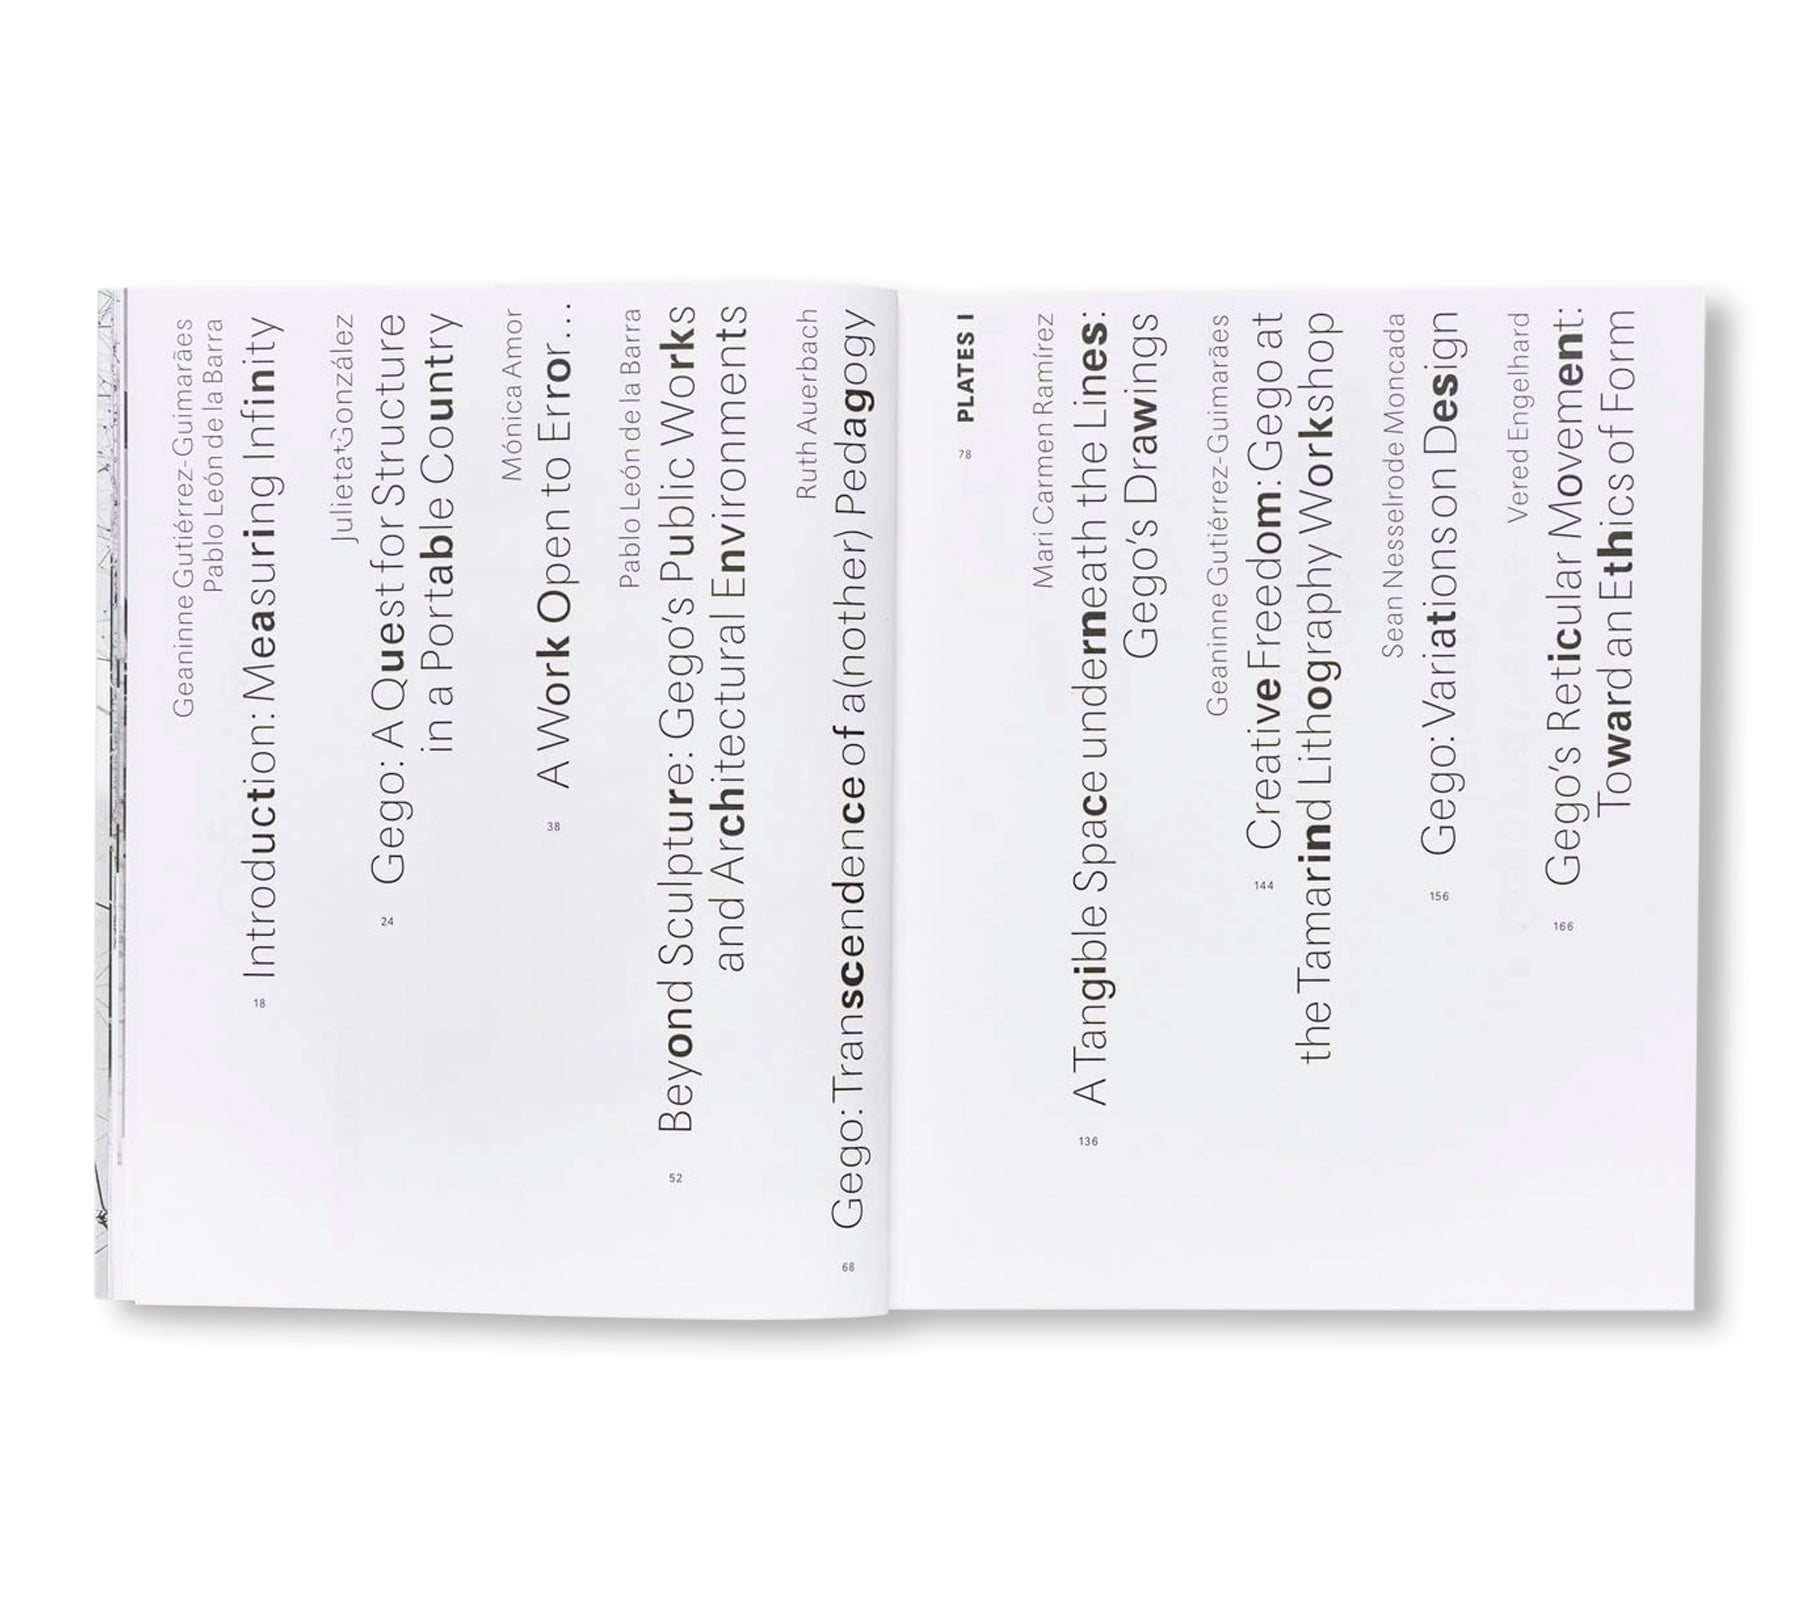 Geaninne Gutiérrez-Guimarães
Pablo León de la Barra
18 Introduction: Measuring Infinity
Julieta González
24 Gego: A Quest for Structure
in a Portable Country
Mónica Amor
38 A Work Open to Error...
Pablo León de la Barra
52 Beyond Sculpture: Gego's Public Works
and Architectural Environments
Ruth Auerbach
68 Gego: Transcendence of a(nother) Pedagogy
78 PLATES I
Mari Carmen Ramírez
136 A Tangible Space underneath the Lines:
Gego's Drawings
Geaninne Gutiérrez-Guimarães
144 Creative Freedom: Gego at
the Tamarind Lithography Workshop
Sean Nesselrode Moncada
156 Gego: Variations on Design
Vered Engelhard
166 Gego's Reticular Movement:
Toward an Ethics of Form